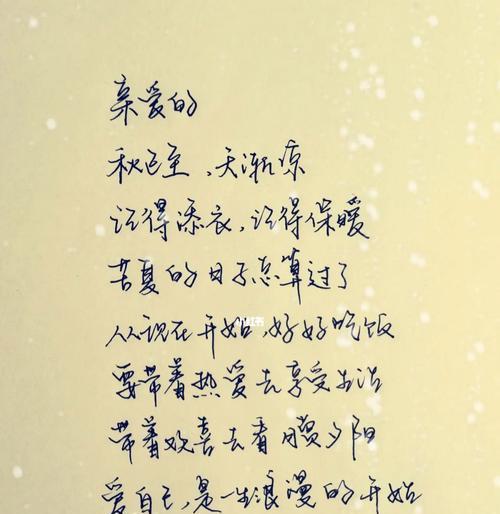 亲爱的
秋已至,天渐凉
记得添衣,记得保暖
苦夏的日子总算过了
小红书
从现在开始,好好吃饭
要带着热爱去享受生活
带着欢喜去看晨夕阳
爱自己,是一生浪漫的开始